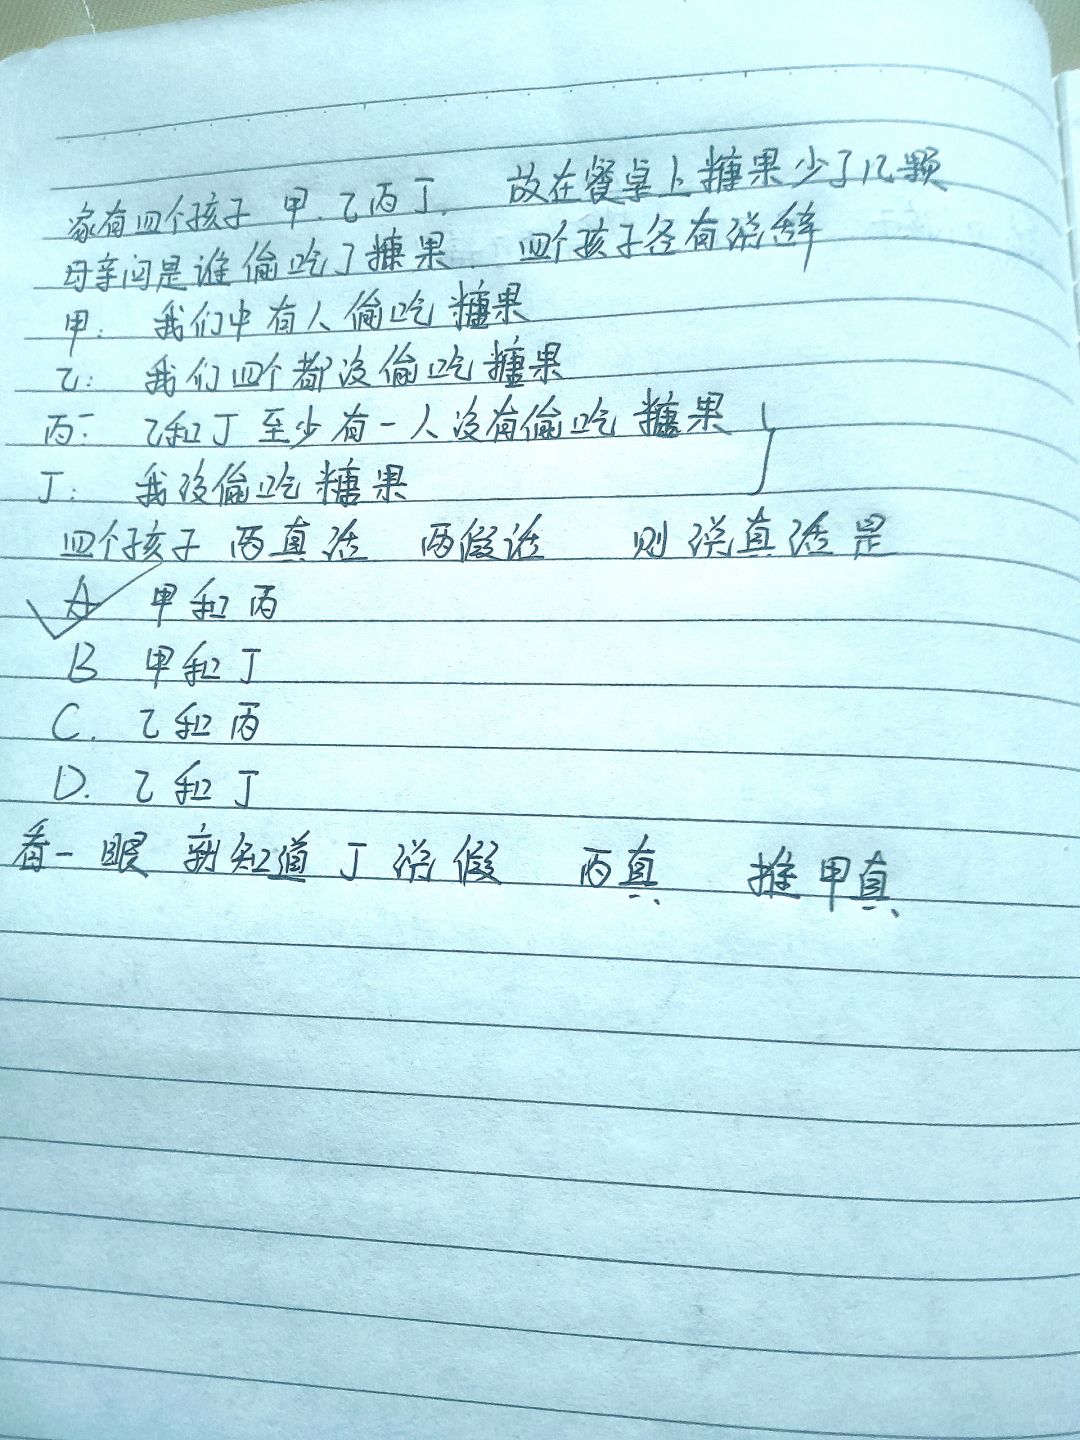 家有四个孩子 甲.乙丙丁. 放在餐桌上糖果少了几颗
母亲问是谁偷吃了糖果. 四个孩子各有说辞
甲: 我们中有人偷吃糖果
乙: 我们四个都没偷吃糖果
丙: 乙和丁至少有一人没有偷吃糖果
丁: 我没偷吃糖果
四个孩子 两真话 两假话 则说真话是
A 甲和丙
B 甲和丁
C. 乙和丙
D. 乙和丁
看一眼 就知道丁说假 丙真 推甲真.